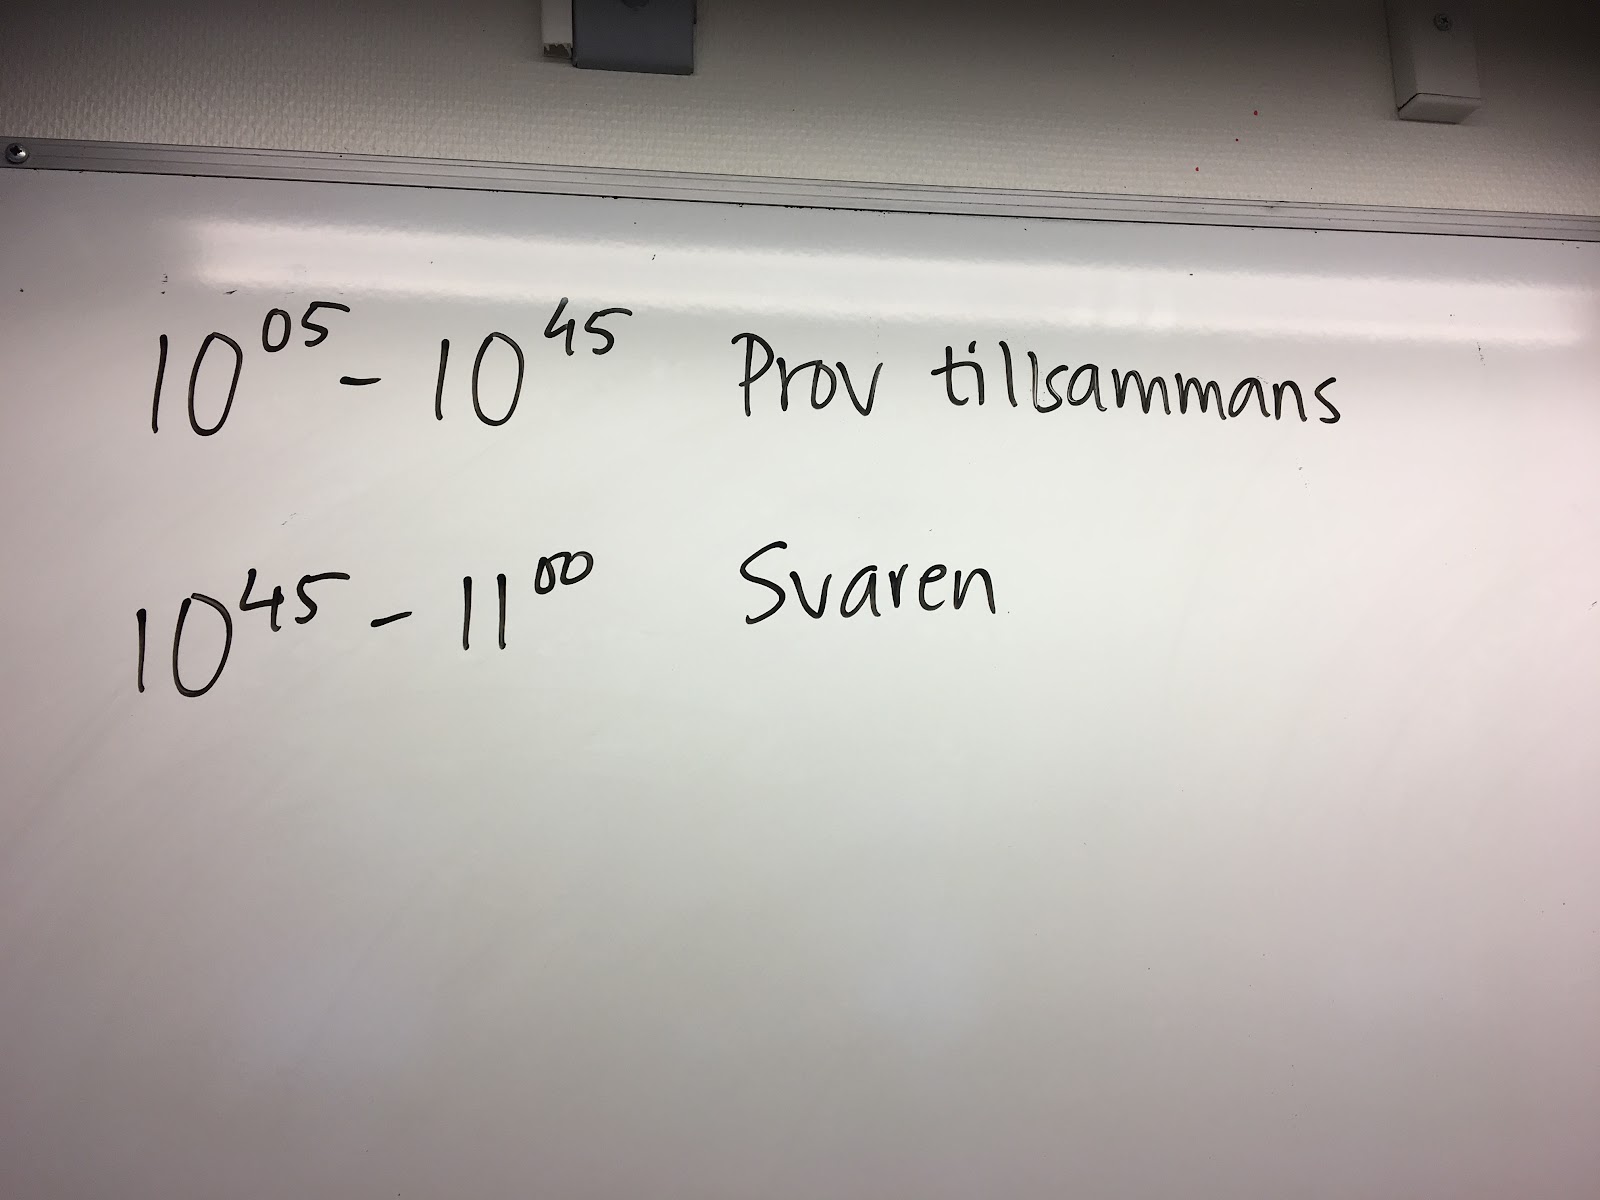 10⁰⁵ - 10⁴⁵ Prov tillsammans
10⁴⁵ - 11⁰⁰ Svaren